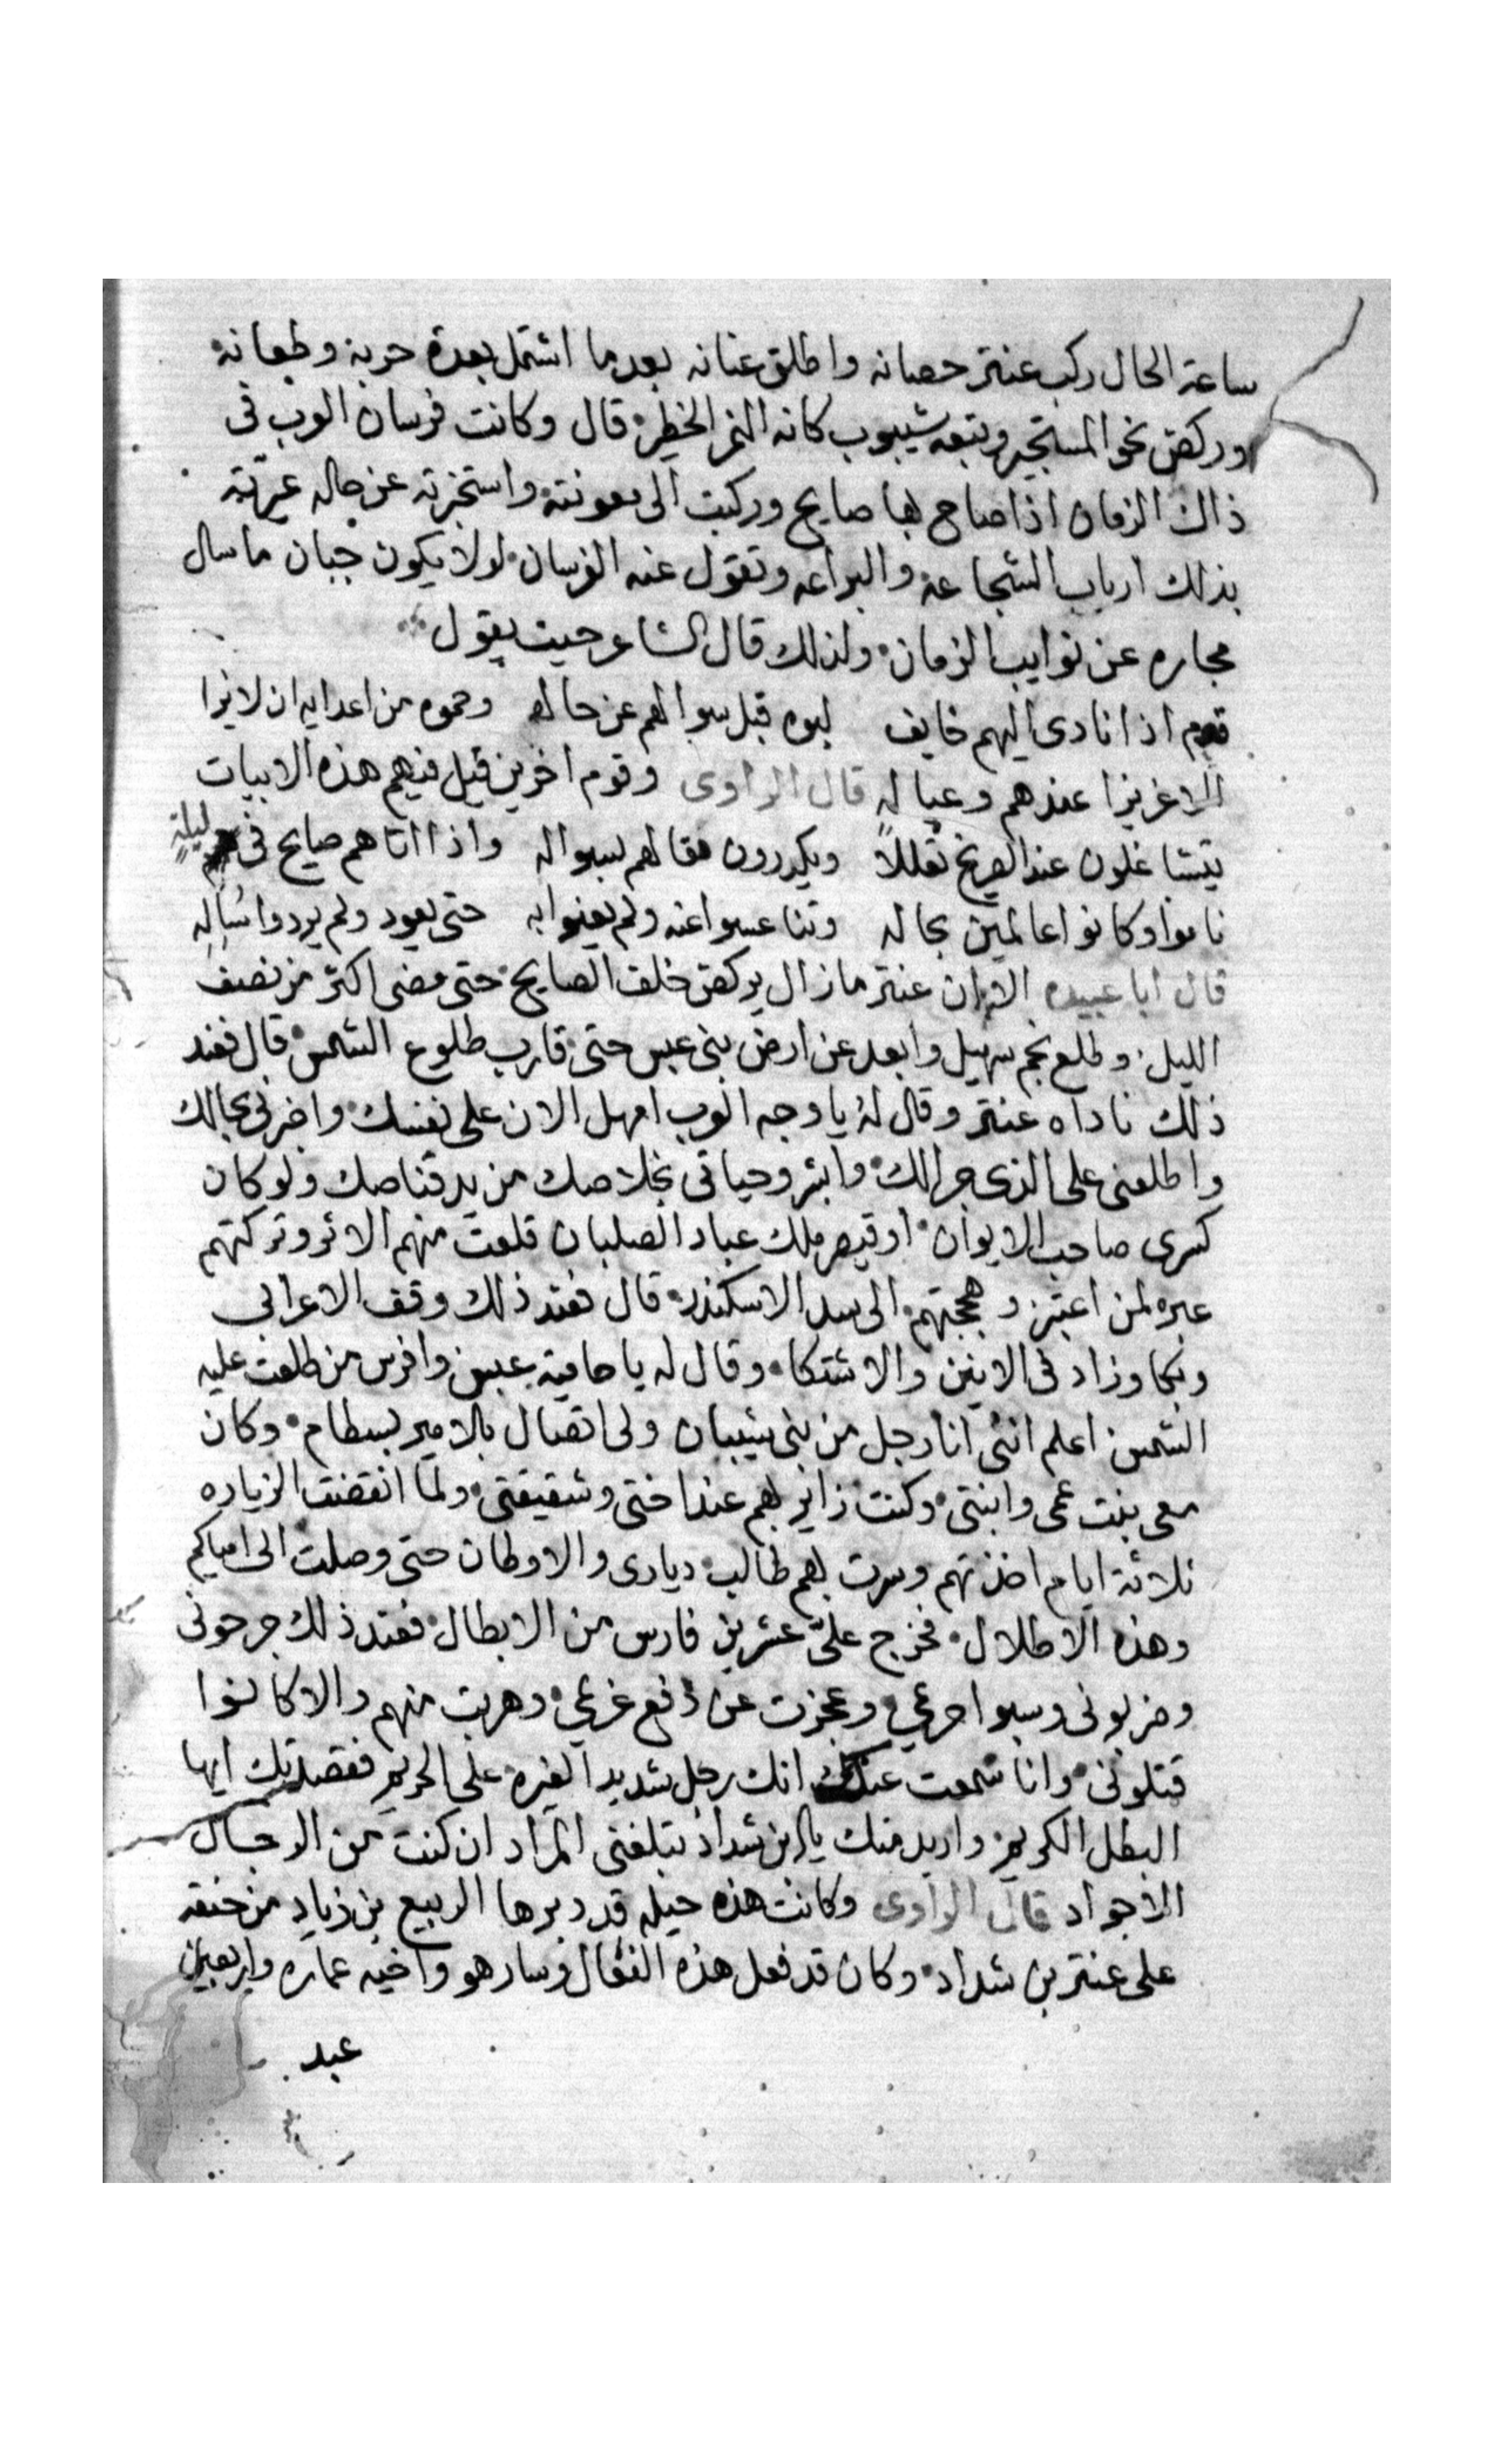 ساعة الحال ركب عنتر حصانه واطلق عنانه بعد ما اشتمل بعدة حربه وطعانه
وركض نحو المستجير وتبعه شيبوب كانه النمر الخطير قال وكانت فرسان العرب فى
ذاك الزمان اذا صاح بها صايح وركبت الى معونته واستخبرته عن حاله عيرته
بذلك ارباب الشجاعه والبراعه وتقول عنه الفرسان لولا يكون جبان ما سال
مجاره عن نوايب الزمان ولذلك قال الشاعر حيث يقول
قوم اذا نادى اليهم خايف لبوه قبل سوالهم عن حاله وحموه من اعدايه ان لا يرا
الا عزيزا عندهم وعياله قال الراوى وقوم اخرين قيل فيهم هذه الابيات
يتشاغلون عند الصريخ تعللاً ويكررون مقالهم لسواله واذا اتاهم صايح فى ليلةٍ
ناموا وكانوا عالمين بحاله وتناعسوا عنه ولم يعنوا به حتى يعود ولم يردوا سُالِه
قال ابا عبيده الا ان عنتر مازال يركض خلف الصايح حتى مضى اكثر من نصف
الليل وطلع نجم سهيل وابعد عن ارض بنى عبس حتى قارب طلوع الشمس قال فعند
ذلك ناداه عنتر وقال لهُ يا وجه العرب امهل الان على نفسك واخبرنى بحالك
واطلعنى على الذى جرالك وابشر وحياتى بخلاصك من يد قناصك ولو كان
كسرى صاحب الايوان او قيصر ملك عباد الصلبان قلعت منهم الاثر وتركتهم
عبره لمن اعتبر وهججتهم الى سد الاسكندر قال فعند ذلك وقف الاعرابى
وبكا وزاد فى الانين والاشتكا وقال له يا حامية عبس وافرس من طلعت عليه
الشمس اعلم اننى انا رجل من بنى شيبان ولى اتصال بالامير بسطام وكان
معى بنت عمى وابنتى وكنت زاير بهم عند اختى وشقيقتى ولما انقضت الزياره
ثلاثة ايام اخذتهم وسرت بهم طالب ديارى والاوطان حتى وصلت الى امياكم
وهذه الاطلال فخرج علىّ عشرين فارس من الابطال فعند ذلك جرحونى
وضربونى وسبوا حريمي وعجزت عن دفع غريمي وهربت منهم والا كانوا
قتلونى وانا سمعت عنك انك رجل شديد الغيره على الحريم فقصدتك ايها
البطل الكريم واريد منك يا ابن شداد تبلغنى المراد ان كنت من الرجال
الاجواد قال الراوى وكانت هذه حيله قد دبرها الربيع بن زياد من حنقه
على عنتر بن شداد وكان قد فعل هذه الفعال وسار هو واخيه عماره واربعين
عبد